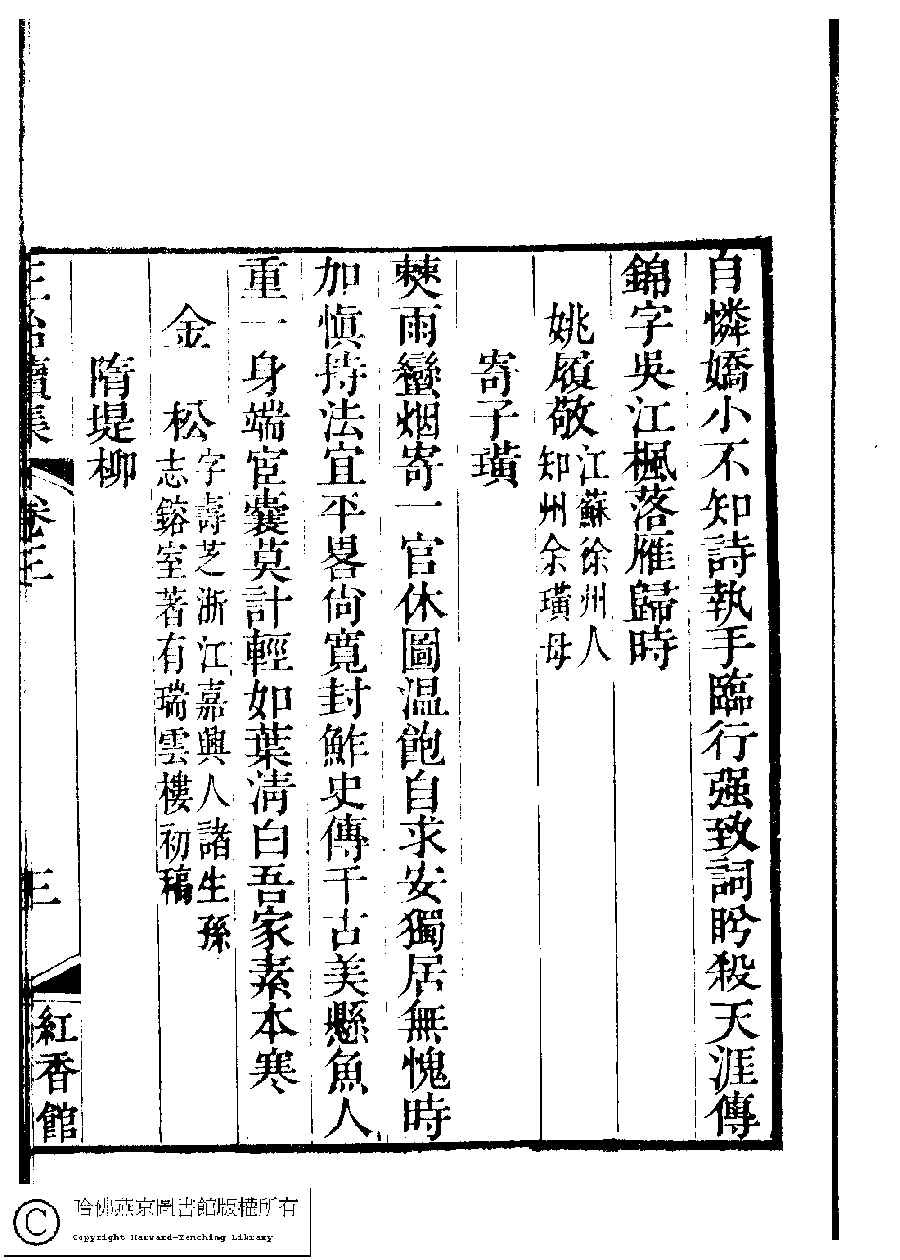 自憐嬌小不知詩執手臨行强致詞盻殺天涯傳
錦字吳江楓落雁歸時
姚履敬江蘇徐州人
知州余璜母
寄子璜
僰雨蠻烟寄一官休圖温飽自求安獨居無愧時
加愼持法宜平畧尙寛封鮓史傳千古美懸魚人
重一身端宦囊莫計輕如葉淸白吾家素本寒
金 松字壽芝浙江嘉興人諸生孫
志鎔室著有瑞雲樓初稿
隋堤柳
正始續集 卷三
三
紅香館
哈佛燕京圖書館版權所有
Copyright Harvard-Yenching Library